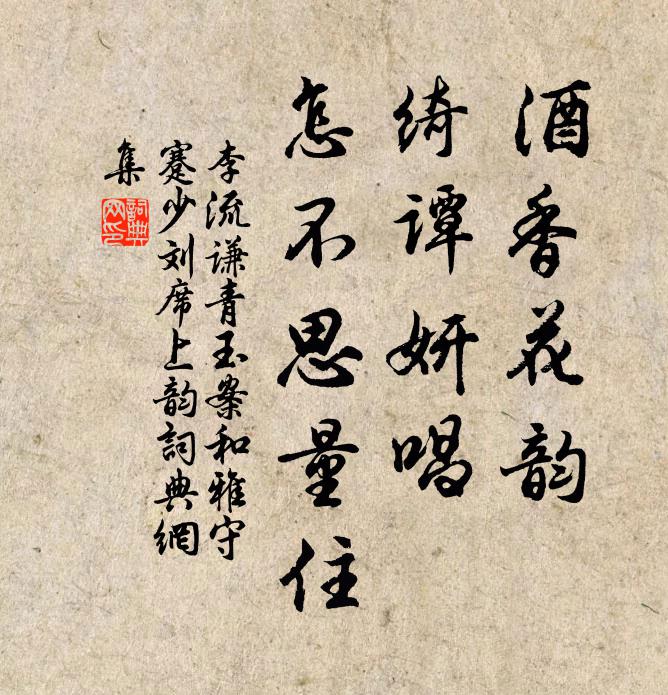 酒香花韵
绮谭妍唱
怎不思量住
李流谦青玉案和雅守
蹇少刘席上韵詞典網
集
詞典
网印